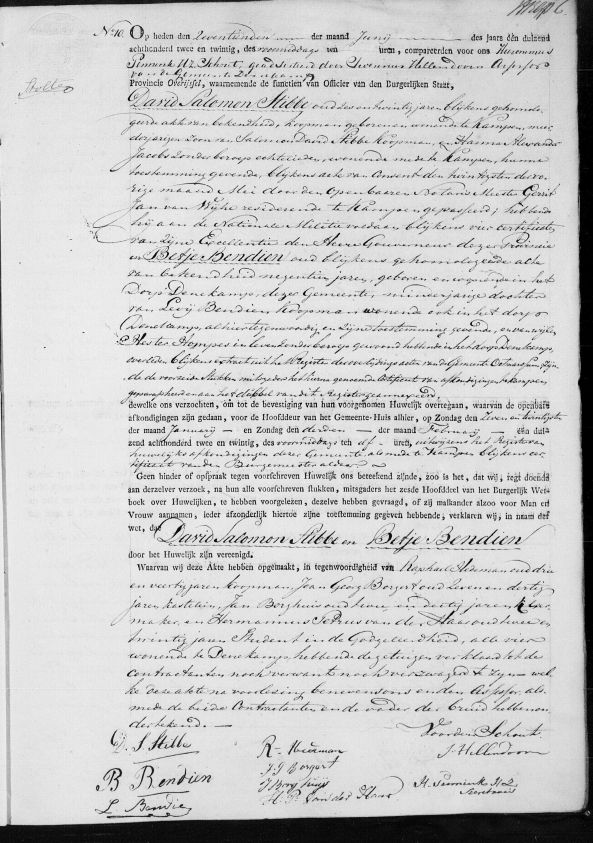 No. 10. Op heden den zeventienden der maand Juny des jaars één duizend
achthonderd twee en twintig, des voormiddags ten uren, compareerden voor ons Hieronimus
Provincie Overijssel, waarnemende de functien van Officier van den Burgerlijken Staat,
Stibbe
David Salomon Stibbe oud zes en twintig jaren blijkens gehomolo
geerde akte van bekendheid, koopman geboren en wonende te Kampen, meer
derjarigen zoon van Salomon David Stibbe koopman, en Harmar Alexander
Jacobs zonder beroep echtelieden, wonende mede te Kampen, hunne
toestemming gevende, blijkens acte van consent den twintigsten der vo
rige maand Mei door den Openbaren Notaris Meester Gerrit
Jan van Wijhe resideerende te Kampen gepasseerd; hebbende
hij aan de Nationale Militie voldaan blijkens vier certificaten
van Zijne Excellentie den Heere Gouverneur dezer Provincie
en Betje Bendien oud blijkens gehomologeerde acte
van bekendheid negentien jaren, geboren en wonende in het
Dorp Denekamp, dezer Gemeente, minderjarige dochter
van Levij Bendien koopman wonende ook in het dorp
Denekamp, alhier tegenwoordig en zijne toestemming gevende, en van wijlen
Hester Hompes in leven zonder beroep gewoond hebbende in het dorp Denekamp,
dewelke ons verzochten, om tot de bevestiging van hun voorgenomen Huwelijk overtegaan, waarvan de openbare
afkondigingen zijn gedaan, voor de Hoofddeur van het Gemeente-Huis alhier, op Zondag den zeven en twintigste
der maand January en Zondag den derden der maand February één dui-
zend achthonderd twee en twintig, des voormiddags ten elf uren, uitwijzens het Register van
huwelijks afkondigingen dezer Gemeente, als mede te Kampen blijkens cer
tificaat van den Burgemeester aldaar
Geen hinder of opspraak tegen voorschreven Huwelijk ons beteekend zijnde, zoo is het, dat wij, regt doende
aan derzelver verzoek, na hun alle voorschreven stukken, mitsgaders het zesde Hoofddeel van het Burgerlijk Wet-
boek over Huwelijken, te hebben voorgelezen, dezelve hebben gevraagd, of zij malkander alzoo voor Man en
Vrouw aannamen, ieder afzonderlijk hiertoe zijne toestemming gegeven hebbende, verklaren wij, in naam der
wet, dat David Salomon Stibbe en Betje Bendien
door het Huwelijk zijn vereenigd.
Waarvan wij deze Akte hebben opgemaakt, in tegenwoordigheid van Raphael Heideman oud drie
en veertig jaren koopman, Joan Georg Borgert oud zeven en dertig
jaren kastelein, Jan Borghuis oud twee en dertig jaren
maker, en Hermannus Petrus van der Haar oud twee en
twintig jaren Student in de Godgeleerdheid, alle vier
wonende te Denekamp, hebbende de getuigen verklaard tot de
contractanten noch verwant noch verzwagerd te zijn wel
ke deze akte na voorlezing benevens ons en den Assessor, als
mede de beide Contractanten en de vader der bruid hebben on
dertekend.
D. S. Stibbe
B Bendien
L. Bendie
J G Borgert
H. P. van der Haar
Voor den Schout
J. Hellendoorn
Secretaris